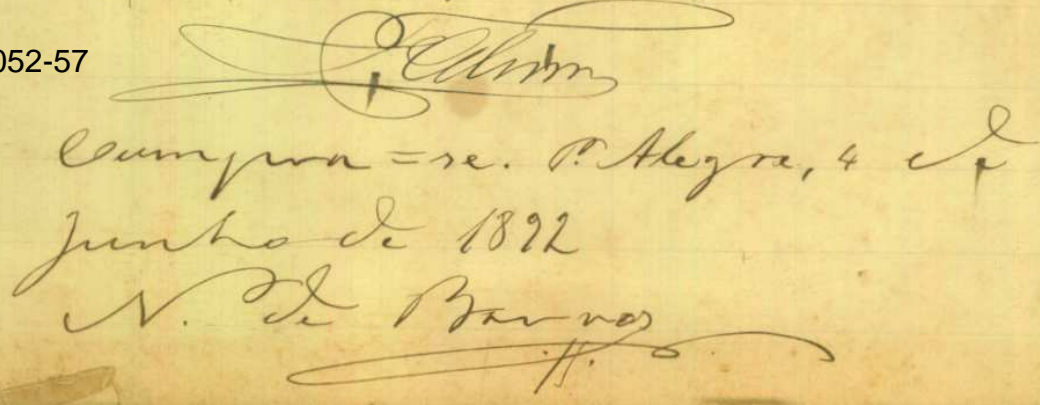 052-57
Cumpra=se. P. Alegre, 4 de
Junho de 1892
N. de Barros